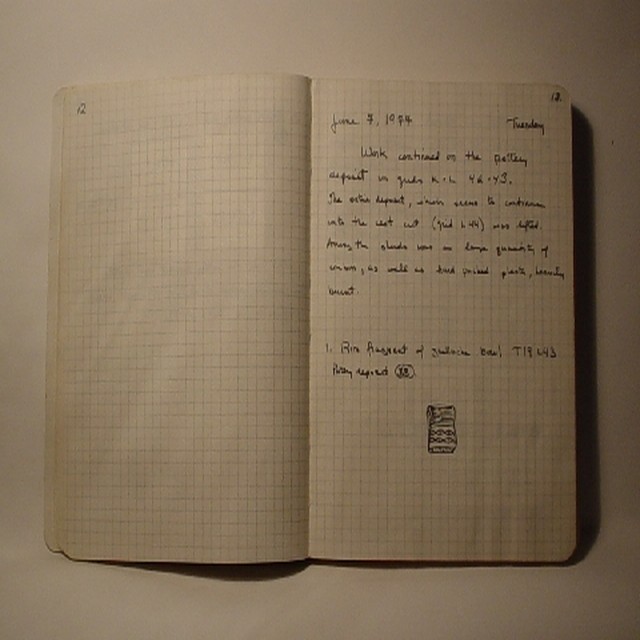 12
12.
June 7, 1977 Tuesday
Work continued on the pottery
deposit in grids K-L 42-43.
The entire deposit, which seems to continue
into the west cut (grid L44) was lifted.
Among the sherds was a large quantity of
as well as hard packed
burnt.
1. Rim fragment of bowl T19 L43
Pottery deposit